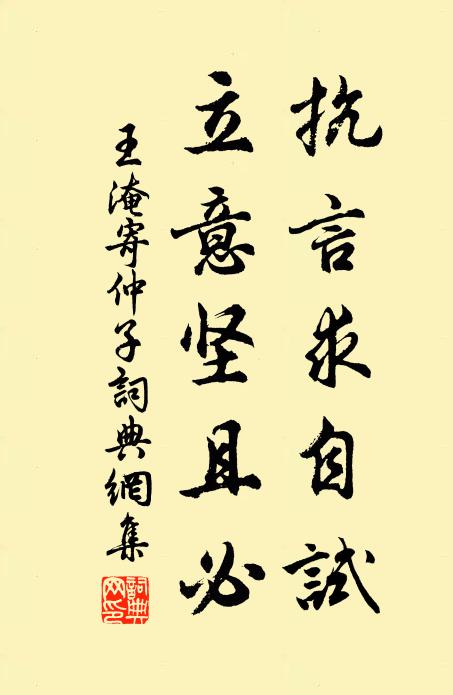 抗言求自試
立意坚且必
王淹寄仲子詞典網集
詞典网印